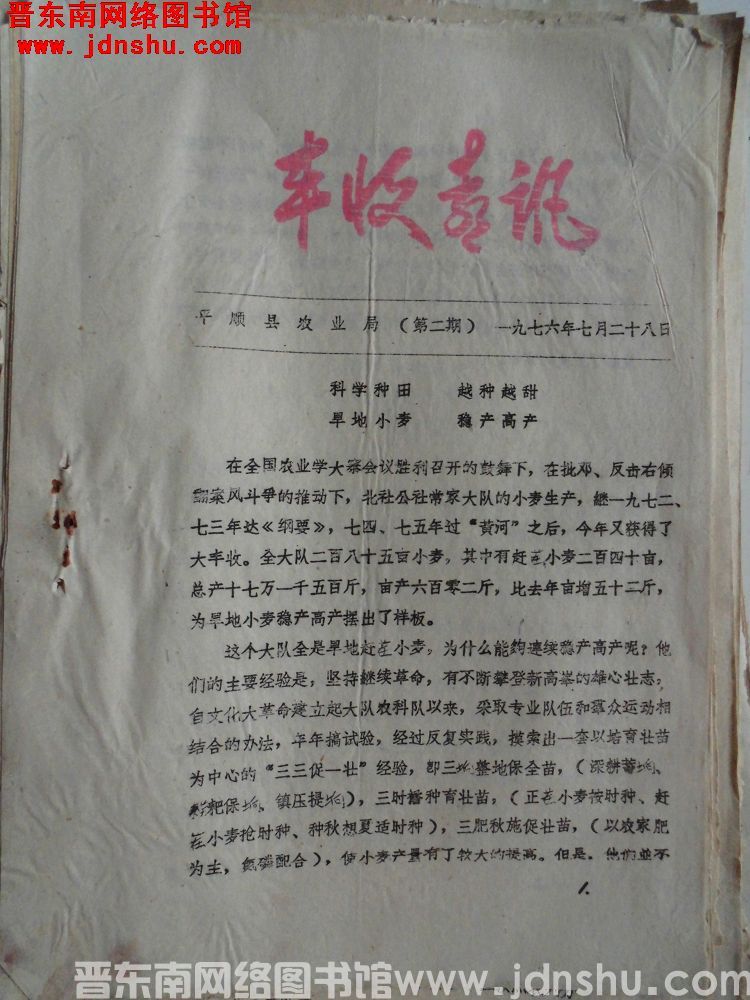 晋东南网络图书馆
www.jdnshu.com
丰收喜讯
平顺县农业局（第二期）一九七六年七月二十八日
科学种田 越种越甜
旱地小麦 稳产高产
在全国农业学大寨会议胜利召开的鼓舞下，在批邓、反击右倾
翻案风斗争的推动下，北社公社常家大队的小麦生产，继一九七二、
七三年达《纲要》，七四、七五年过“黄河”之后，今年又获得了
大丰收。全大队二百八十五亩小麦，其中有赶茬小麦二百四十亩，
总产十七万一千五百斤，亩产六百零二斤，比去年亩增五十二斤，
为旱地小麦稳产高产摆出了样板。
这个大队全是旱地赶茬小麦，为什么能够连续稳产高产呢？他
们的主要经验是，坚持继续革命，有不断攀登新高峯的雄心壮志，
自文化大革命建立起大队农科队以来，采取专业队伍和群众运动相
结合的办法，年年搞试验，经过反复实践，摸索出一套以培育壮苗
为中心的“三三促一壮”经验，即三墒整地保全苗，（深耕蓄墒、
耙保墒、镇压提墒），三时播种育壮苗，（正茬小麦按时种、赶
茬小麦抢时种、种秋想夏适时种），三肥秋施促壮苗，（以农家肥
为主，氮磷配合），使小麦产量有了较大的提高。但是，他们並不
1.
晋东南网络图书馆www.jdnshu.com